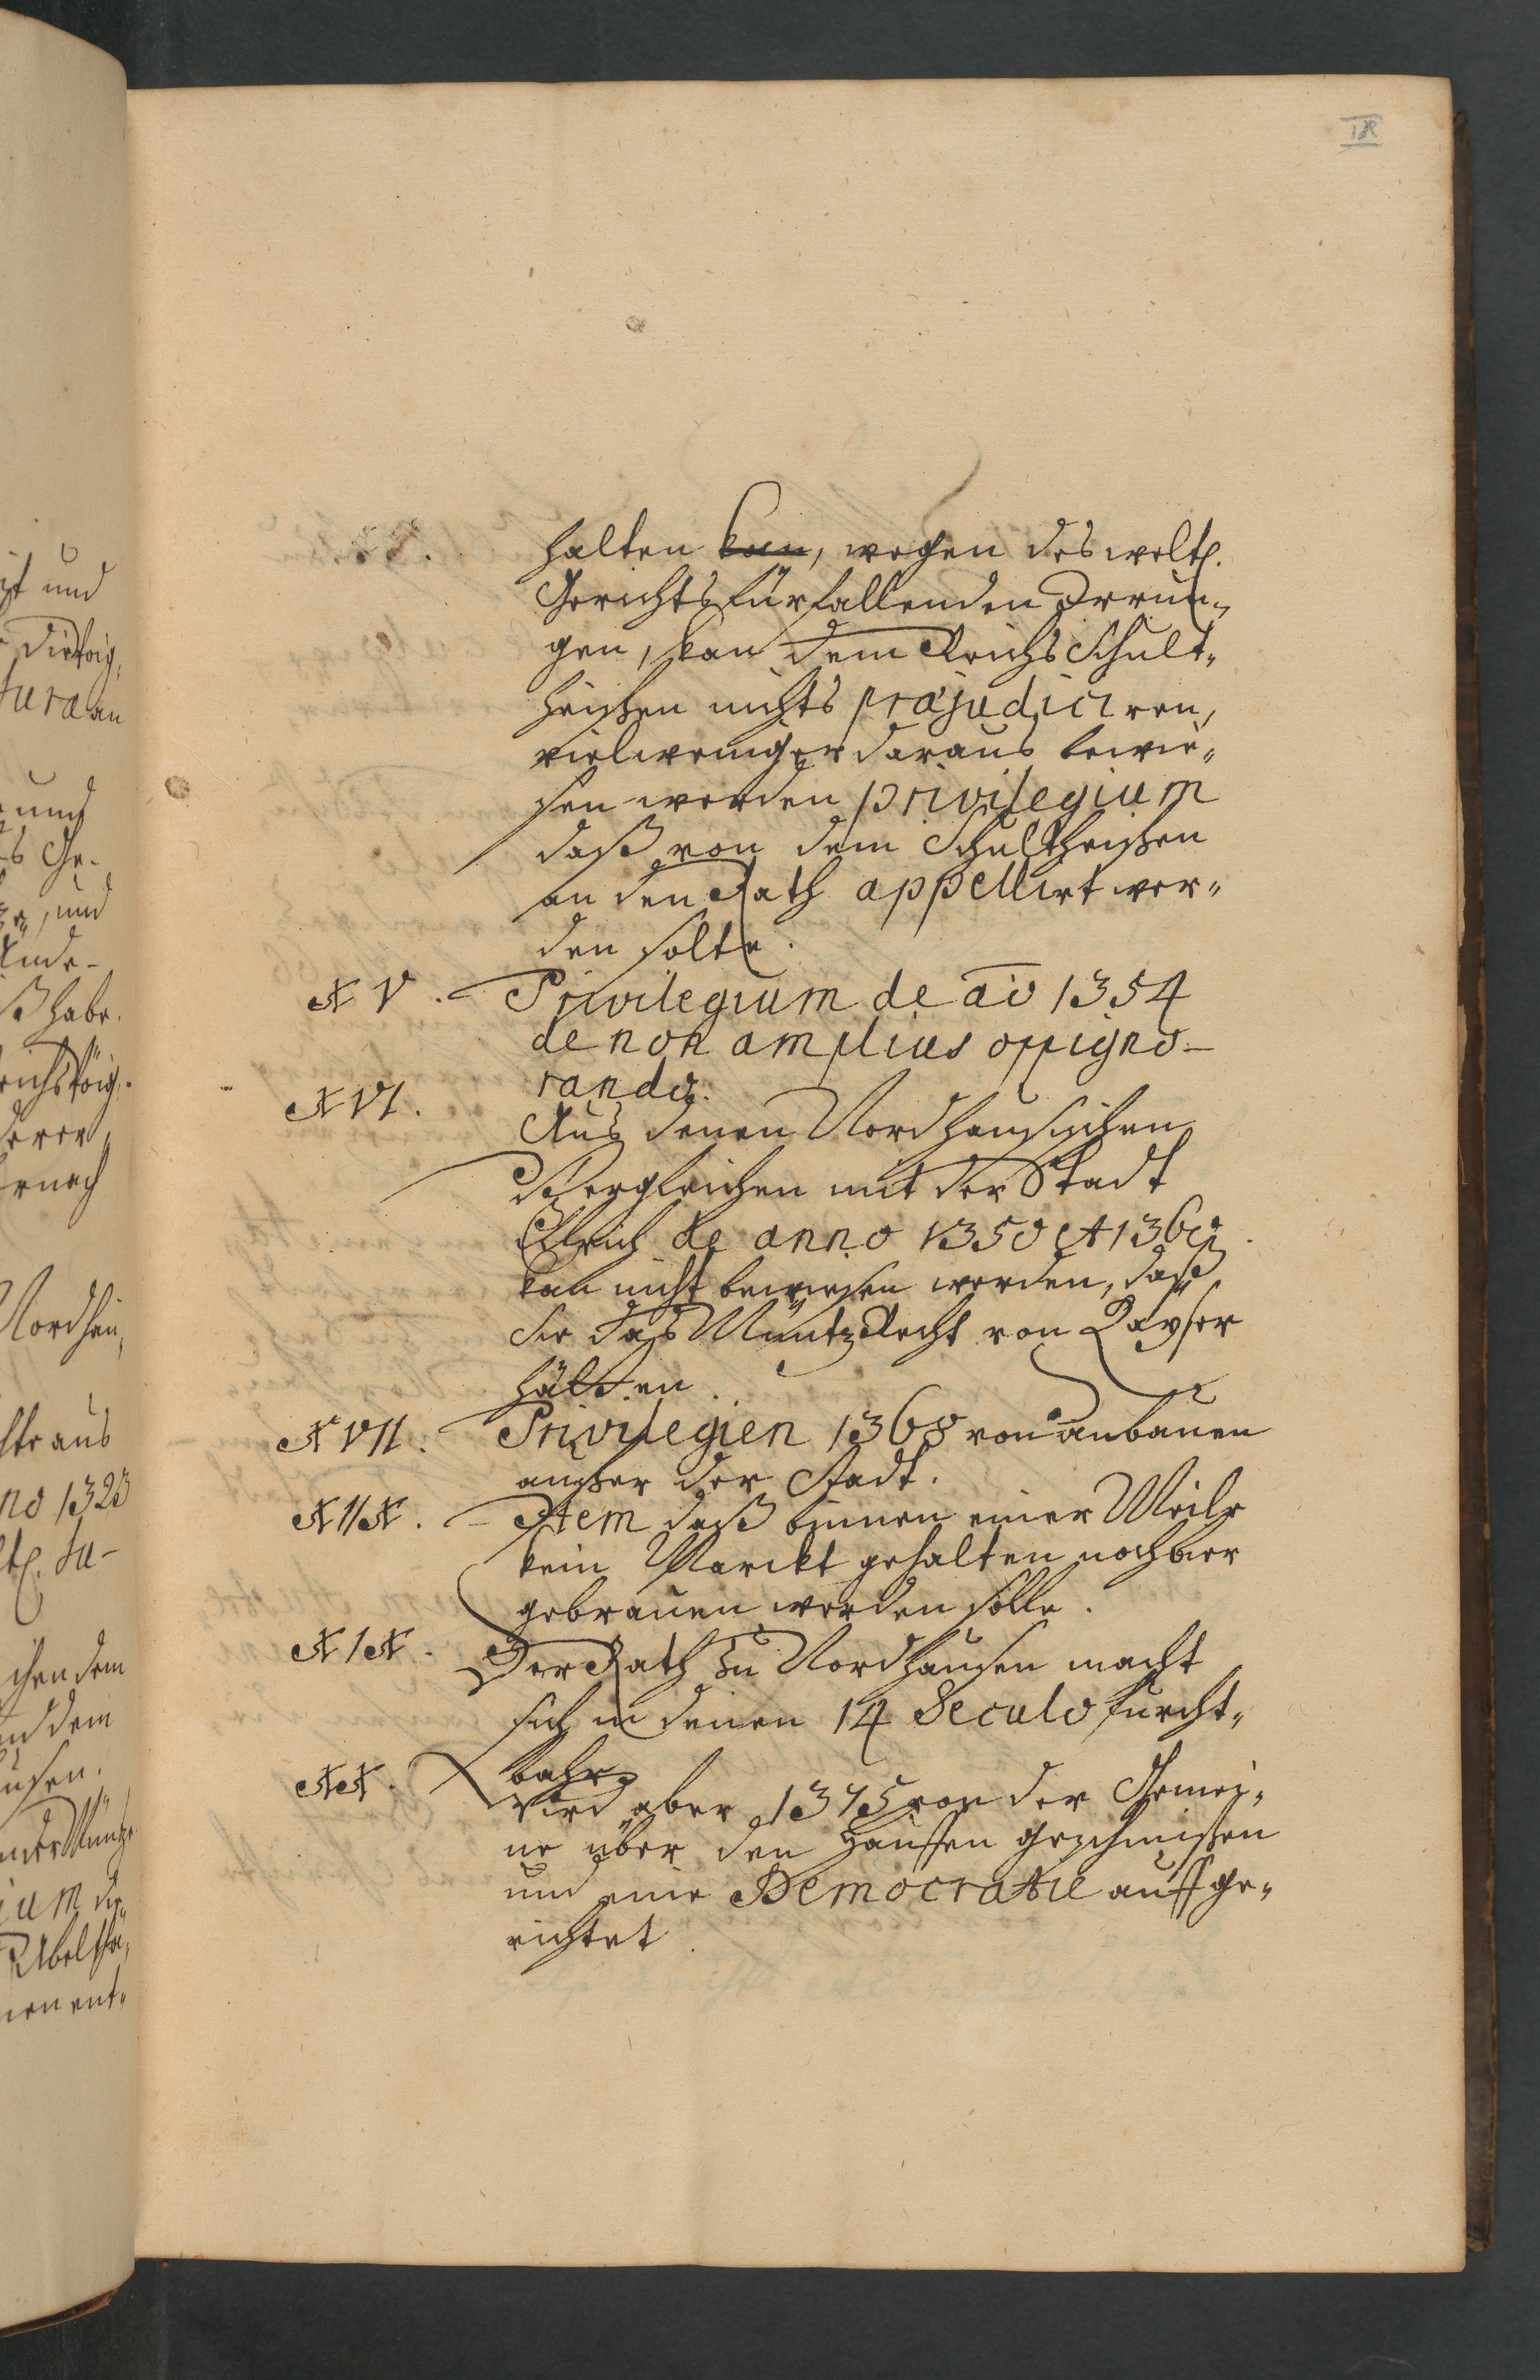 IX
halten kan, wegen des weltl.
Gerichts fürfallenden Irrun„
gen, kan dem Reichs Schult„
heißen nichts præjudiciren,
vielweniger daraus bewie„
sen werden privilegium
daß von dem Schultheißen
an den Rath appellirt wer„
den solte.
XV. Privilegium de aō 1354
de non amplius oppigno-
rando.
XVI. Aus denen Nordhausischen
Vergleichen mit der Stadt
Ellrich de anno 1350 et 1360
kan nicht bewiesen werden, daß
sie das Müntz Recht von Kayser
hätten.
XVII. Privilegien 1368 von anbauen
außer der Stadt.
XIIX. Item daß binnen einer Meile
kein Marckt gehalten noch bier
gebrauen werden solle.
XIX. Der Rath zu Nordhausen macht
sich in denen 14 Seculo furcht„
bahr,
XX. Wird aber 1375 von der Gemei„
ne über den Hauffen geschmißen
und eine Democratie auffge„
richtet.